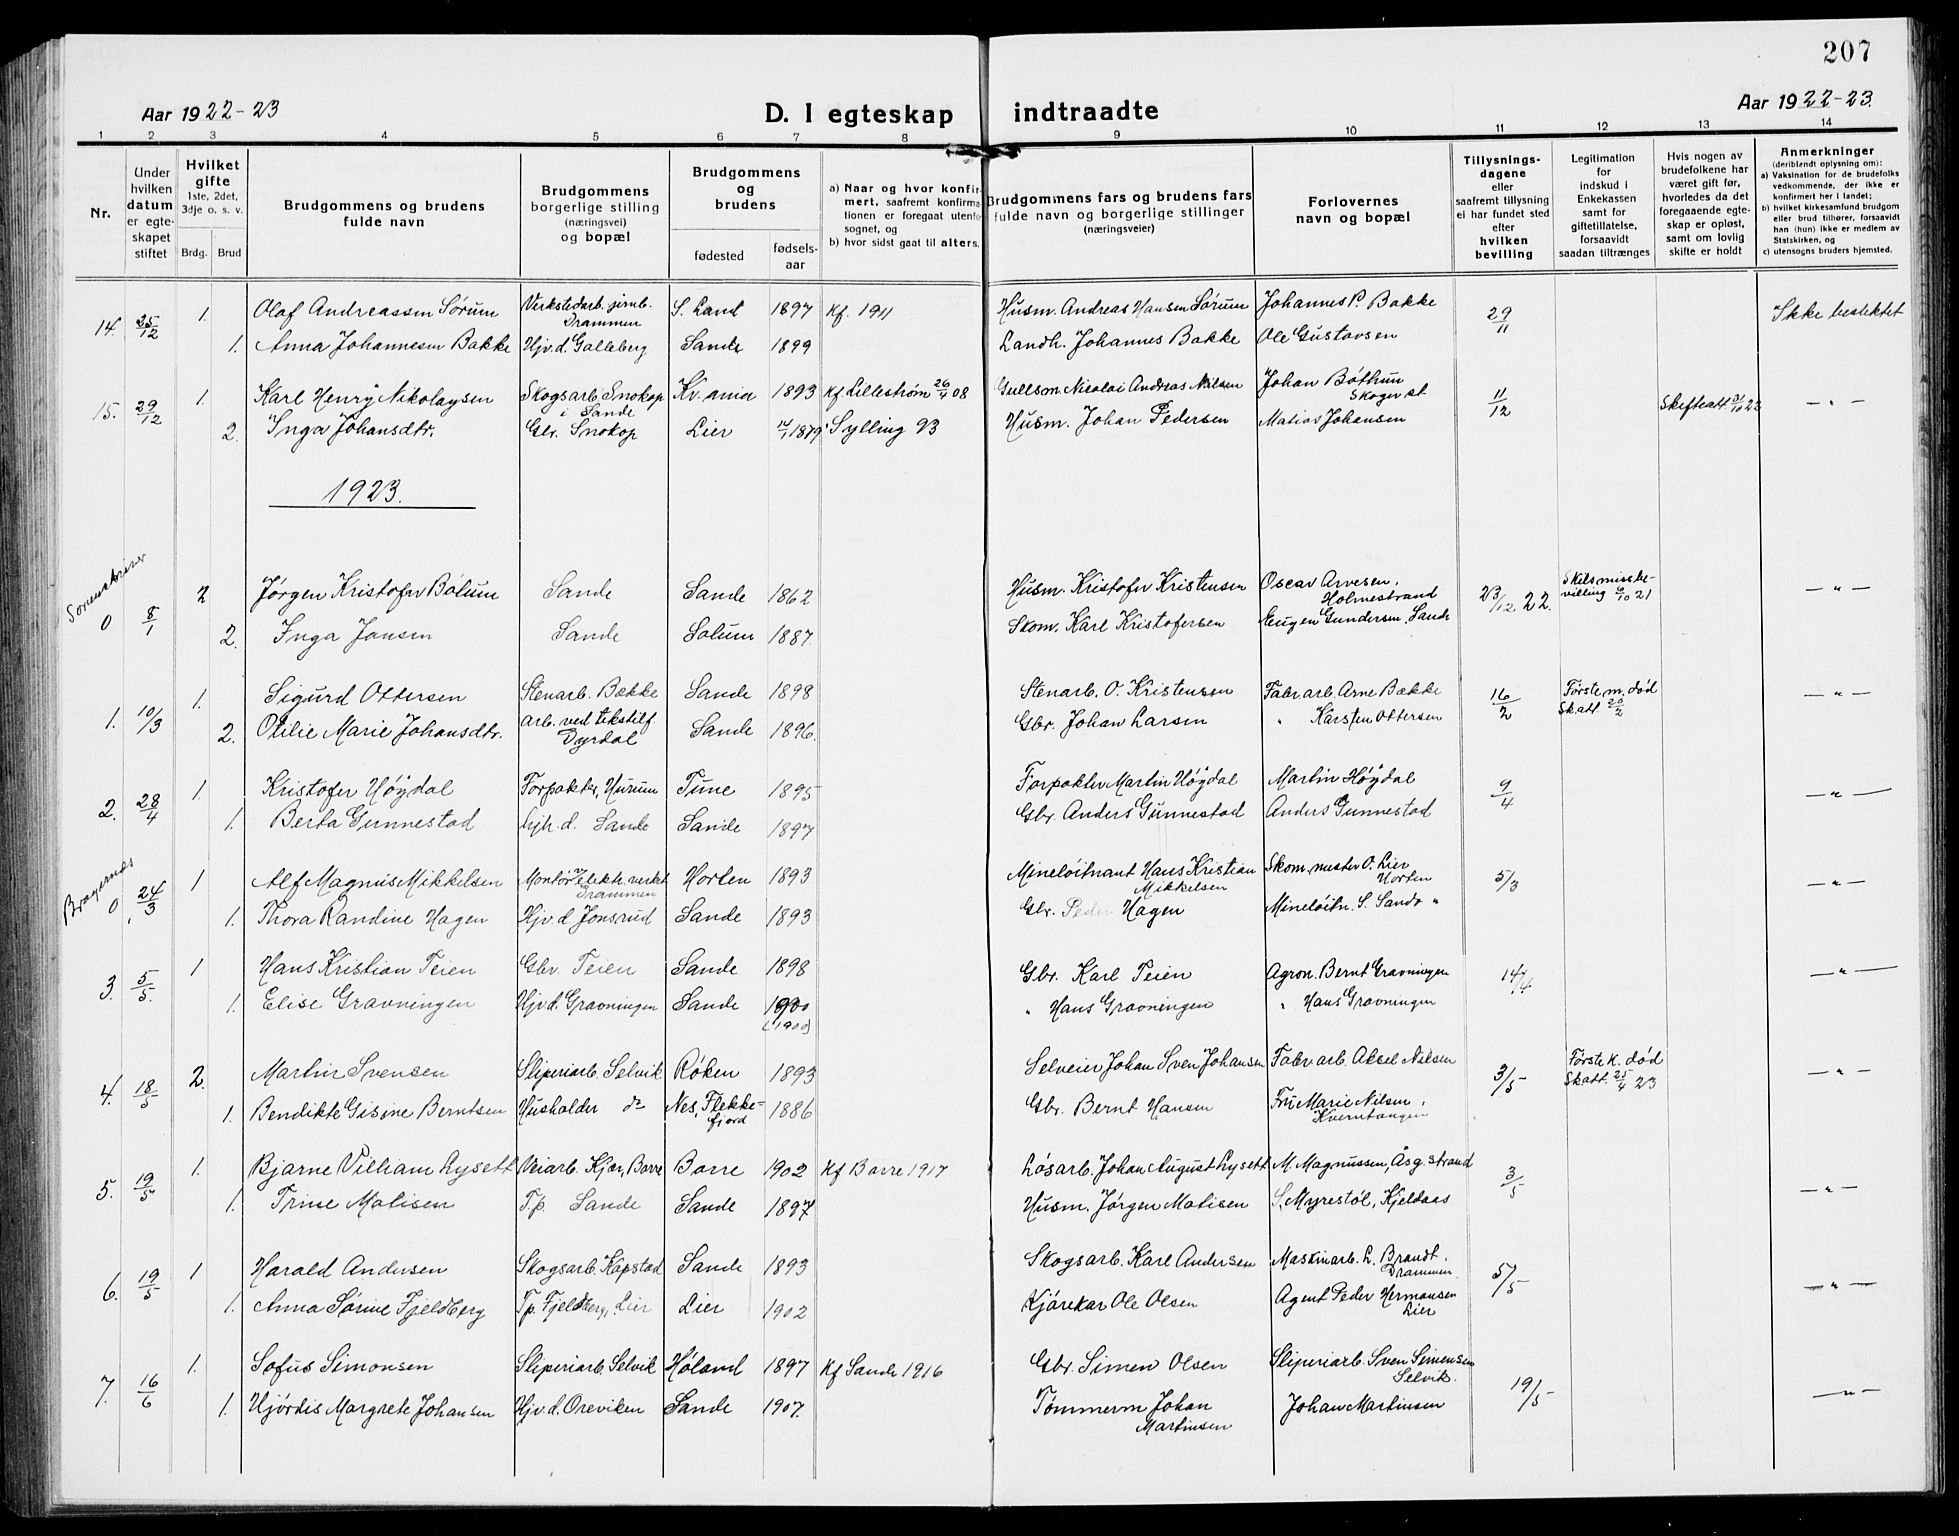 207
Aar 1922-23
D. I egteskap indtraadte
Aar 1922-23.
1 2 3 4 5 6 7 8 9 10 11 12 13 14
Nr.
Under hvilken datum er egteskapet stiftet
Hvilket gifte 1ste, 2det, 3dje o. s. v.
Brdg. Brud
Brudgommens og brudens fulde navn
Brudgommens borgerlige stilling (næringsvei) og bopæl
Brudgommens og brudens
fødested
fødsels-aar
a) Naar og hvor konfirmert, saafremt konfirmationen er foregaat utenfor sognet, og
b) hvor sidst gaat til alters.
Brudgommens fars og brudens fars fulde navn og borgerlige stillinger (næringsveier)
Forlovernes navn og bopæl
Tillysnings-dagene eller saafremt tillysning ei har fundet sted efter hvilken bevilling
Legitimation for indskud i Enkekassen samt for giftetillatelse, forsaavidt saadan tiltrænges
Hvis nogen av brudefolkene har været gift før, hvorledes da det foregaaende egteskap er opløst, samt om lovlig skifte er holdt
Anmerkninger
(deriblandt oplysning om):
a) Vaksination for de brudefolks vedkommende, der ikke er konfirmert her i landet;
b) hvilket kirkesamfund brudgom eller brud tilhører, forsaavidt han (hun) ikke er medlem av Statskirken, og
c) utensogns bruders hjemsted.
14. 25/12 1. Olaf Andreassen Sørum Verkstedarb. jernb. Drammen S. Land 1897 Kf. 1911 Husm. Andreas Hansen Sørum Johannes P. Bakke 29/11 Ikke beslektet
1. Anna Johannesen Bakke Hjv. d. Galleberg Sande 1899 Landh. Johannes Bakke Ole Gustavsen
15. 29/12 1. Karl Henry Nikolaysen Skogsarb. Snekop i Sande Kr.ania 1893 Kf. Lillestrøm 26/4 08 Gullsm. Nicolai Andreas Nilsen Johan Bøthun Skoger st 11/12 Skifteatt 31/10 22 — " —
2. Inga Johansdtr. Gbr. Snekop Lier 14/1 1879 Sylling 93 Husm. Johan Pedersen Matias Johansen
1923.
Sorenskriver
0 8/1 2 Jørgen Kristofer Bølum Sande Sande 1862 Husm. Kristofer Kristensen Oscar Arvesen, Holmestrand 23/12 22. Skilsmissebevilling 6/10 21 — " —
2. Inga Jansen Sande Solum 1887. Skom. Karl Kristofersen Eugen Gundersen, Sande
1. 10/3 1. Sigurd Ottersen Stenarb. Bække Sande 1898 Stenarb. O. Kristensen Fabr. arb. Arne Bække 16/2 Første m. død Skatt. 20/2 — " —
2. Otilie Marie Johansdtr. arb. ved tekstilf. Dyrdal Sande 1896. Gbr. Johan Larsen " Karsten Ottersen
2. 28/4 1. Kristofer Høydal Forpakter, Hurum Tune 1895 Forpakter Martin Høydal Martin Høydal 9/4 — " —
1. Berta Gunnestad Hjh. d. Sande Sande 1897 Gbr. Anders Gunnestad Anders Gunnestad
Bragernes
0 24/3 1 Alf Magnus Mikkelsen Montør v. elektr. verket Drammen Horten 1893 Mineløitnant Hans Kristian Mikkelsen Skom. mester O. Lier Horten 5/3 — " —
1. Thora Randine Hagen Hjv. d. Jonsrud Sande 1893 Gbr. Peder Hagen Mineløitn. S. Sande "
3. 5/5. 1 Hans Kristian Teien Gbr. Teien Sande 1898 Gbr. Karl Teien Agron. Bernt Gravningen 14/4 — " —
1. Elise Gravningen Hjv. d. Gravningen Sande 1900 (1900) " Hans Gravningen " Hans Gravningen
4. 18/5 2. Martin Svensen Sliperiarb. Selvik Røken 1893 Selveier Johan Sven Johansen Fabr. arb. Aksel Nilsen 3/5 Første k. død Skatt. 25/4 23 — " —
1. Bendikte Gisine Berntsen Husholder do Nes, Flekkefjord 1886 Gbr. Bernt Hansen Fru Marie Nilsen, Kverntangen
5. 19/5 1. Bjarne Villiam Lysett Veiarb. Kjær, Borre Borre 1902 Kf Borre 1917 Løsarb. Johan August Lysett M. Magnussen, Åsg. strand 3/5 — " —
1. Trine Matisen Tp. Sande Sande 1897 Husm. Jørgen Matisen S. Myrestøl, Kjeldaas
6. 19/5 1 Harald Andersen Skogsarb. Kapstad Sande 1893 Skogsarb. Karl Andersen Maskinarb. L. Brandt, Drammen. 5/5 — " —
1. Anna Sørine Fjeldberg Tp. Fjeldberg, Lier Lier 1902 Kjørekar Ole Olsen Agent Peder Hermansen Lier
7. 16/6 1. Sofus Simonsen Sliperiarb. Selvik Høland 1897 Kf Sande 1916 Gbr. Simen Olsen Sliperiarb. Sven Simensen Selvik. 19/5 — " —
1. Hjørdis Margrete Johansen Hjv. d. Oreviken Sande 1907. Tømmerm Johan Martinsen Johan Martinsen